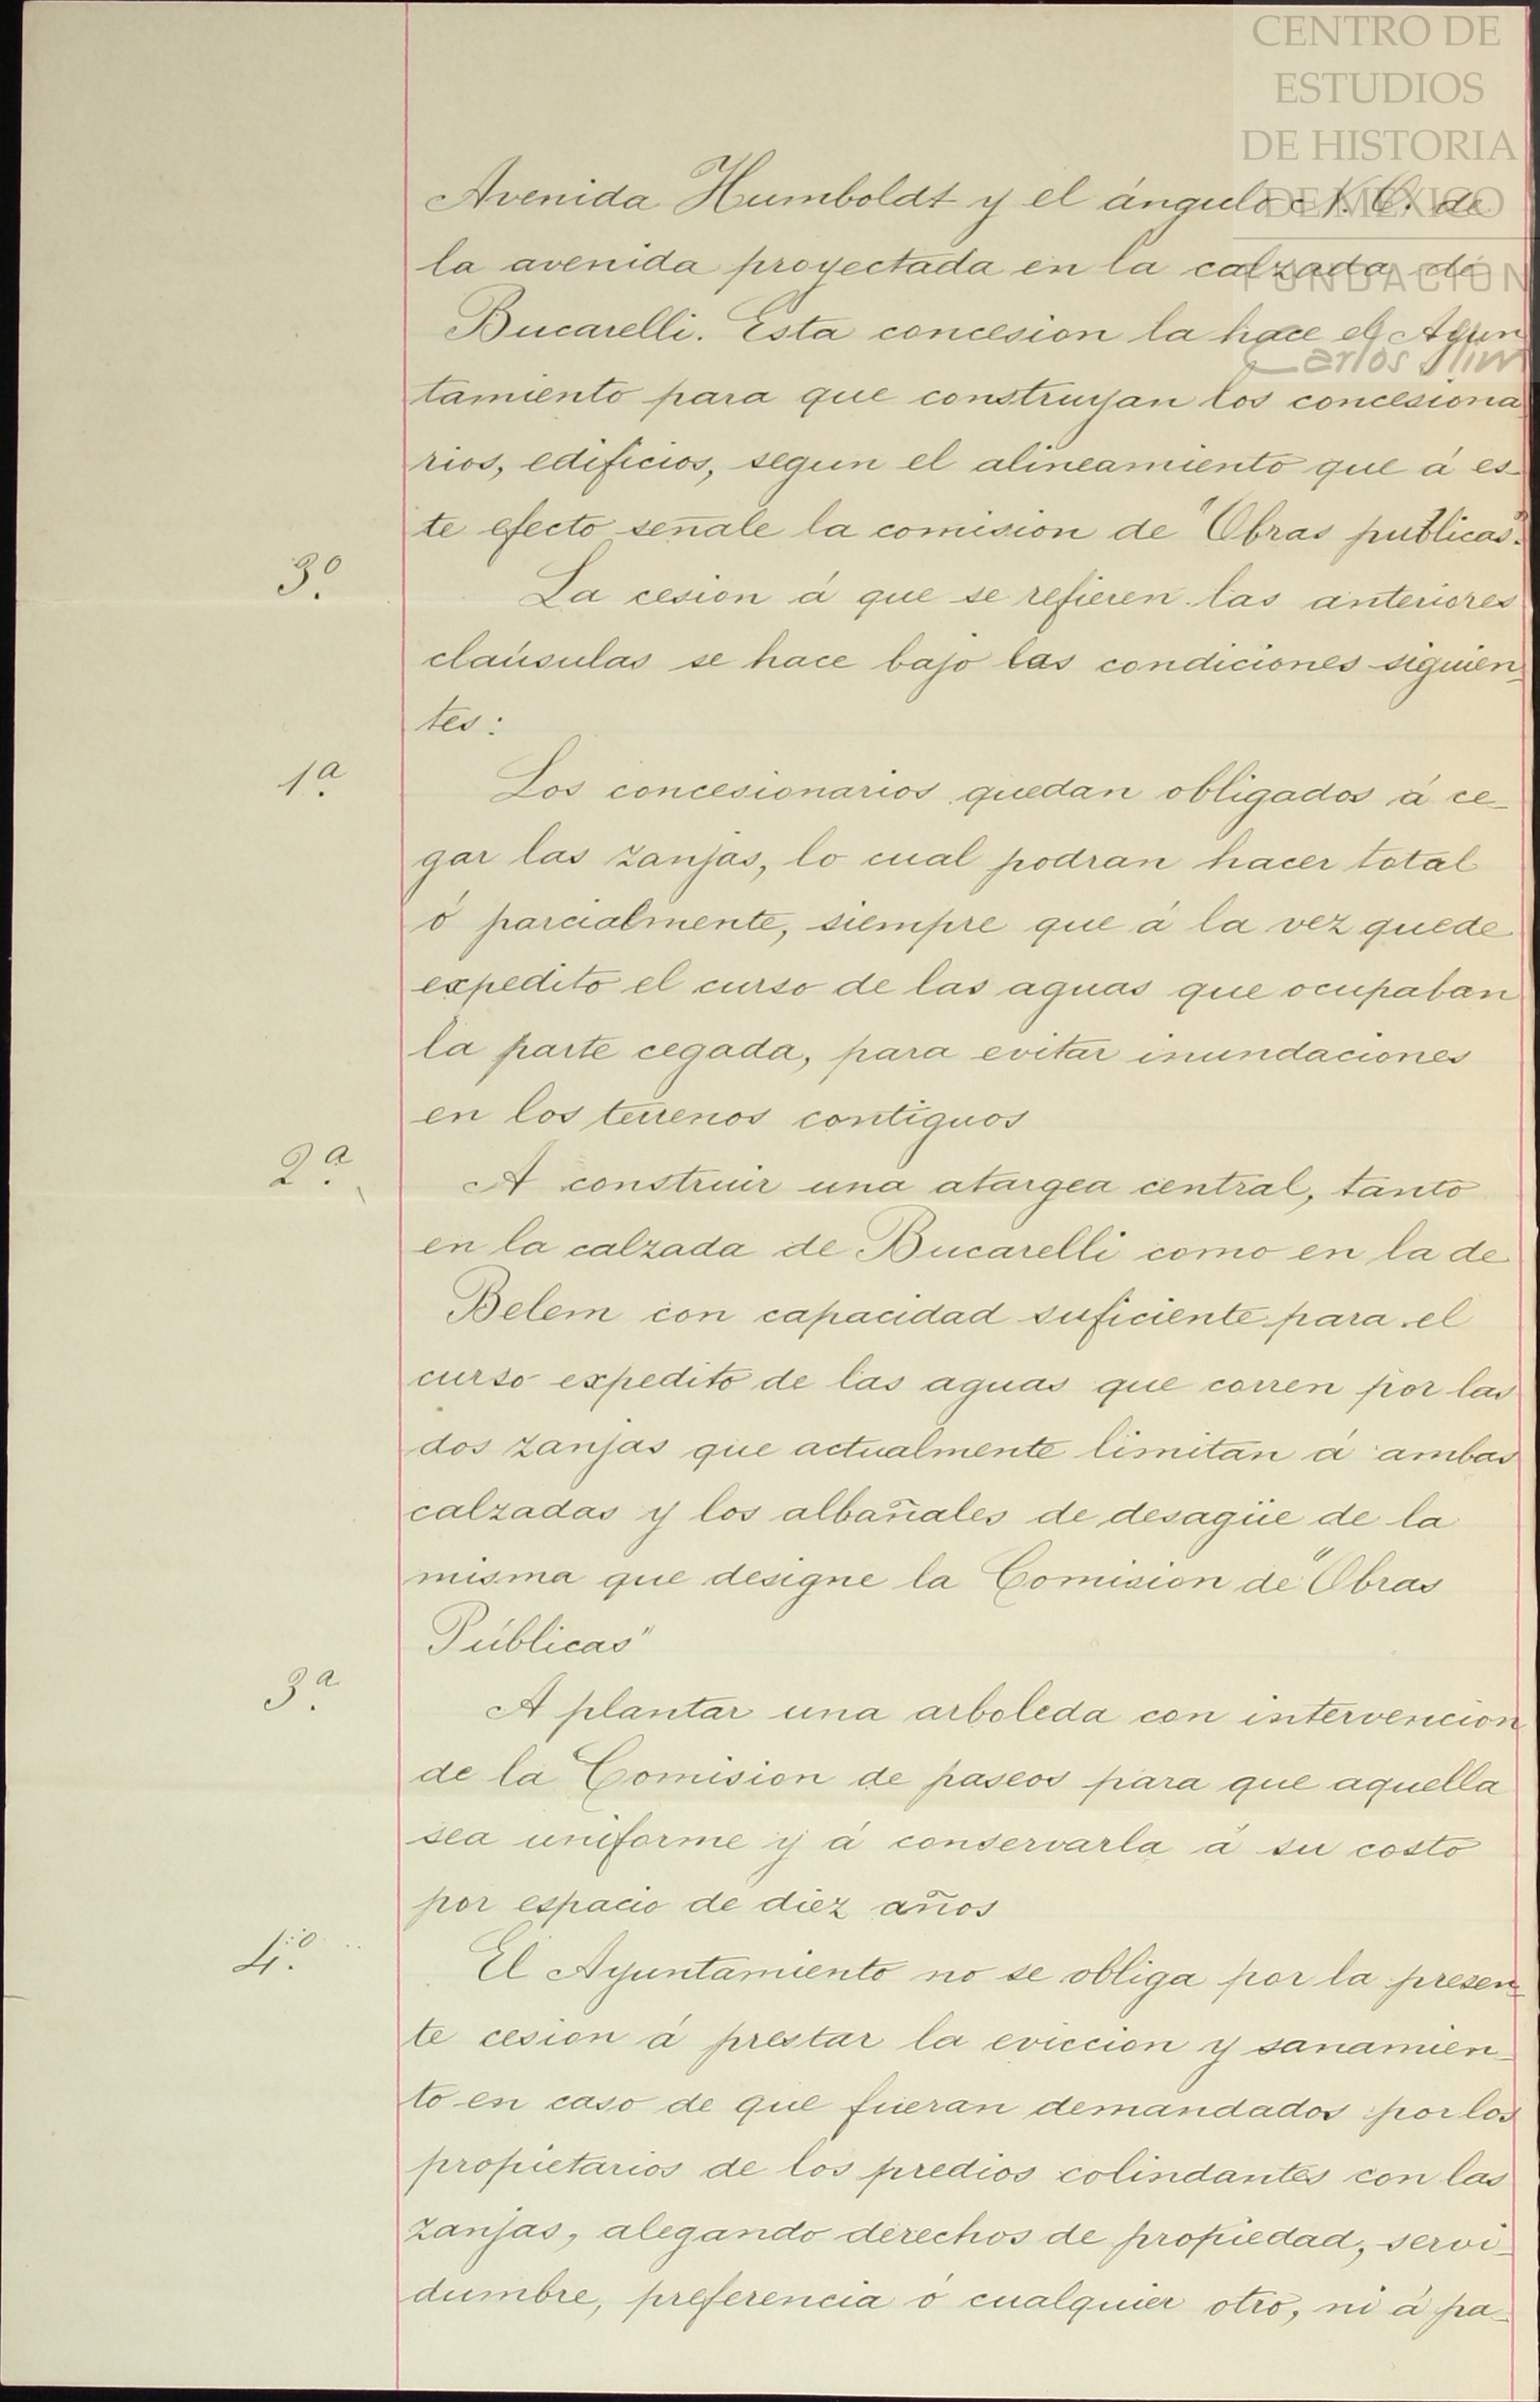 CENTRO DE
ESTUDIOS
DE HISTORIA
DE MÉXICO
FUNDACIÓN
Carlos Slim
Avenida Humboldt y el ángulo N. O. de
la avenida proyectada en la calzada de
Bucarelli. Esta concesion la hace el Ayun
tamiento para que construyan los concesiona
rios, edificios, segun el alineamiento que á es-
te efecto señale la comision de "Obras publicas".
3º. La cesion á que se refieren las anteriores
claúsulas se hace bajo las condiciones siguien-
tes:
1ª. Los concesionarios quedan obligados á ce-
gar las zanjas, lo cual podran hacer total
ó parcialmente, siempre que á la vez quede
expedito el curso de las aguas que ocupaban
la parte cegada, para evitar inundaciones
en los terrenos contiguos
2ª. A construir una atargea central, tanto
en la calzada de Bucarelli como en la de
Belem con capacidad suficiente para el
curso expedito de las aguas que corren por las
dos zanjas que actualmente limitan á ambas
calzadas y los albañales de desagüe de la
misma que designe la Comision de "Obras
Públicas"
3ª. A plantar una arboleda con intervencion
de la Comision de paseos para que aquella
sea uniforme y á conservarla á su costo
por espacio de diez años
4º. El Ayuntamiento no se obliga por la presen-
te cesion á prestar la eviccion y sanamien-
to en caso de que fueran demandados por los
propietarios de los predios colindantes con las
zanjas, alegando derechos de propiedad, servi-
dumbre, preferencia ó cualquier otro, ni á pa-